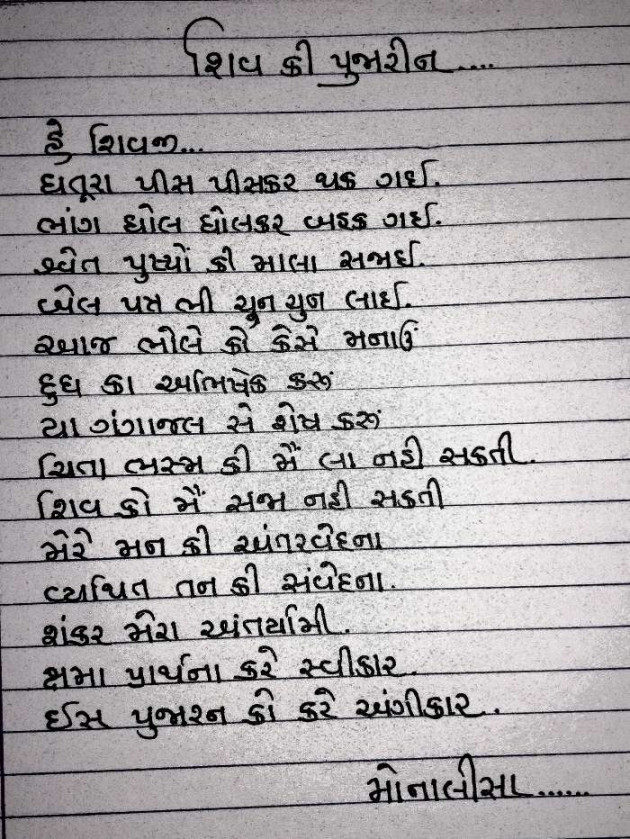 શિવ કી પુજારીન....
હે શિવજી...
ધતૂરા પીસ પીસકર થક ગઈ.
ભાંગ ઘોલ ઘોલકર બહક ગઈ.
શ્વેત પુષ્પોં કી માલા સજાઈ.
બેલ પત્ર ભી ચુન ચુન લાઈ.
આજ ભોલે કો કૈસે મનાઉં
દુધ કા અભિષેક કરૂં
યા ગંગાજલ સે શેષ કરૂં
ચિતા ભસ્મ કી મૈં લા નહી સકતી.
શિવ કો મૈં સજા નહી સકતી
મેરે મન કી અંતરવેદના
વ્યથિત તન કી સંવેદના.
શંકર મેરા અંતર્યામી.
ક્ષમા પ્રાર્થના કરે સ્વીકાર.
ઈસ પુજારન કો કરે અંગીકાર.
મોનાલીસા......